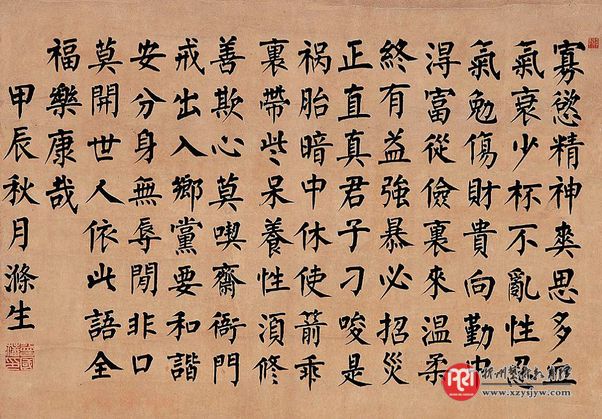 寡慾精神爽思多血
氣衰少杯不亂性忍
氣勉傷財貴向勤中
淂富從儉裏來温柔
終有益強暴必招災
正直真君子刁唆是
祸胎暗中休使箭乖
裏帶些呆養性湏修
善欺心莫喫齋衙門
戒出入鄉黨要和諧
安分身無辱閒非口
莫開世人依此語全
福樂康哉
甲辰秋月滌生
www.xzysjyw.com